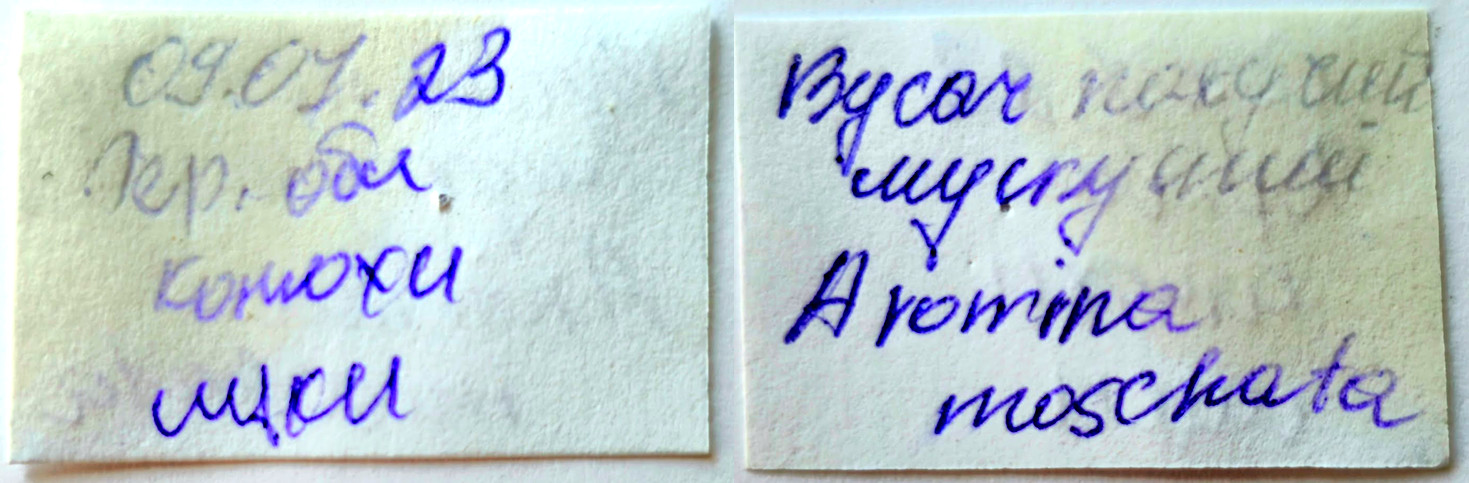 09.07.23
Тер. обл
конюхи
луки
Вусач пахучий
мускусний
Aromina
moschata